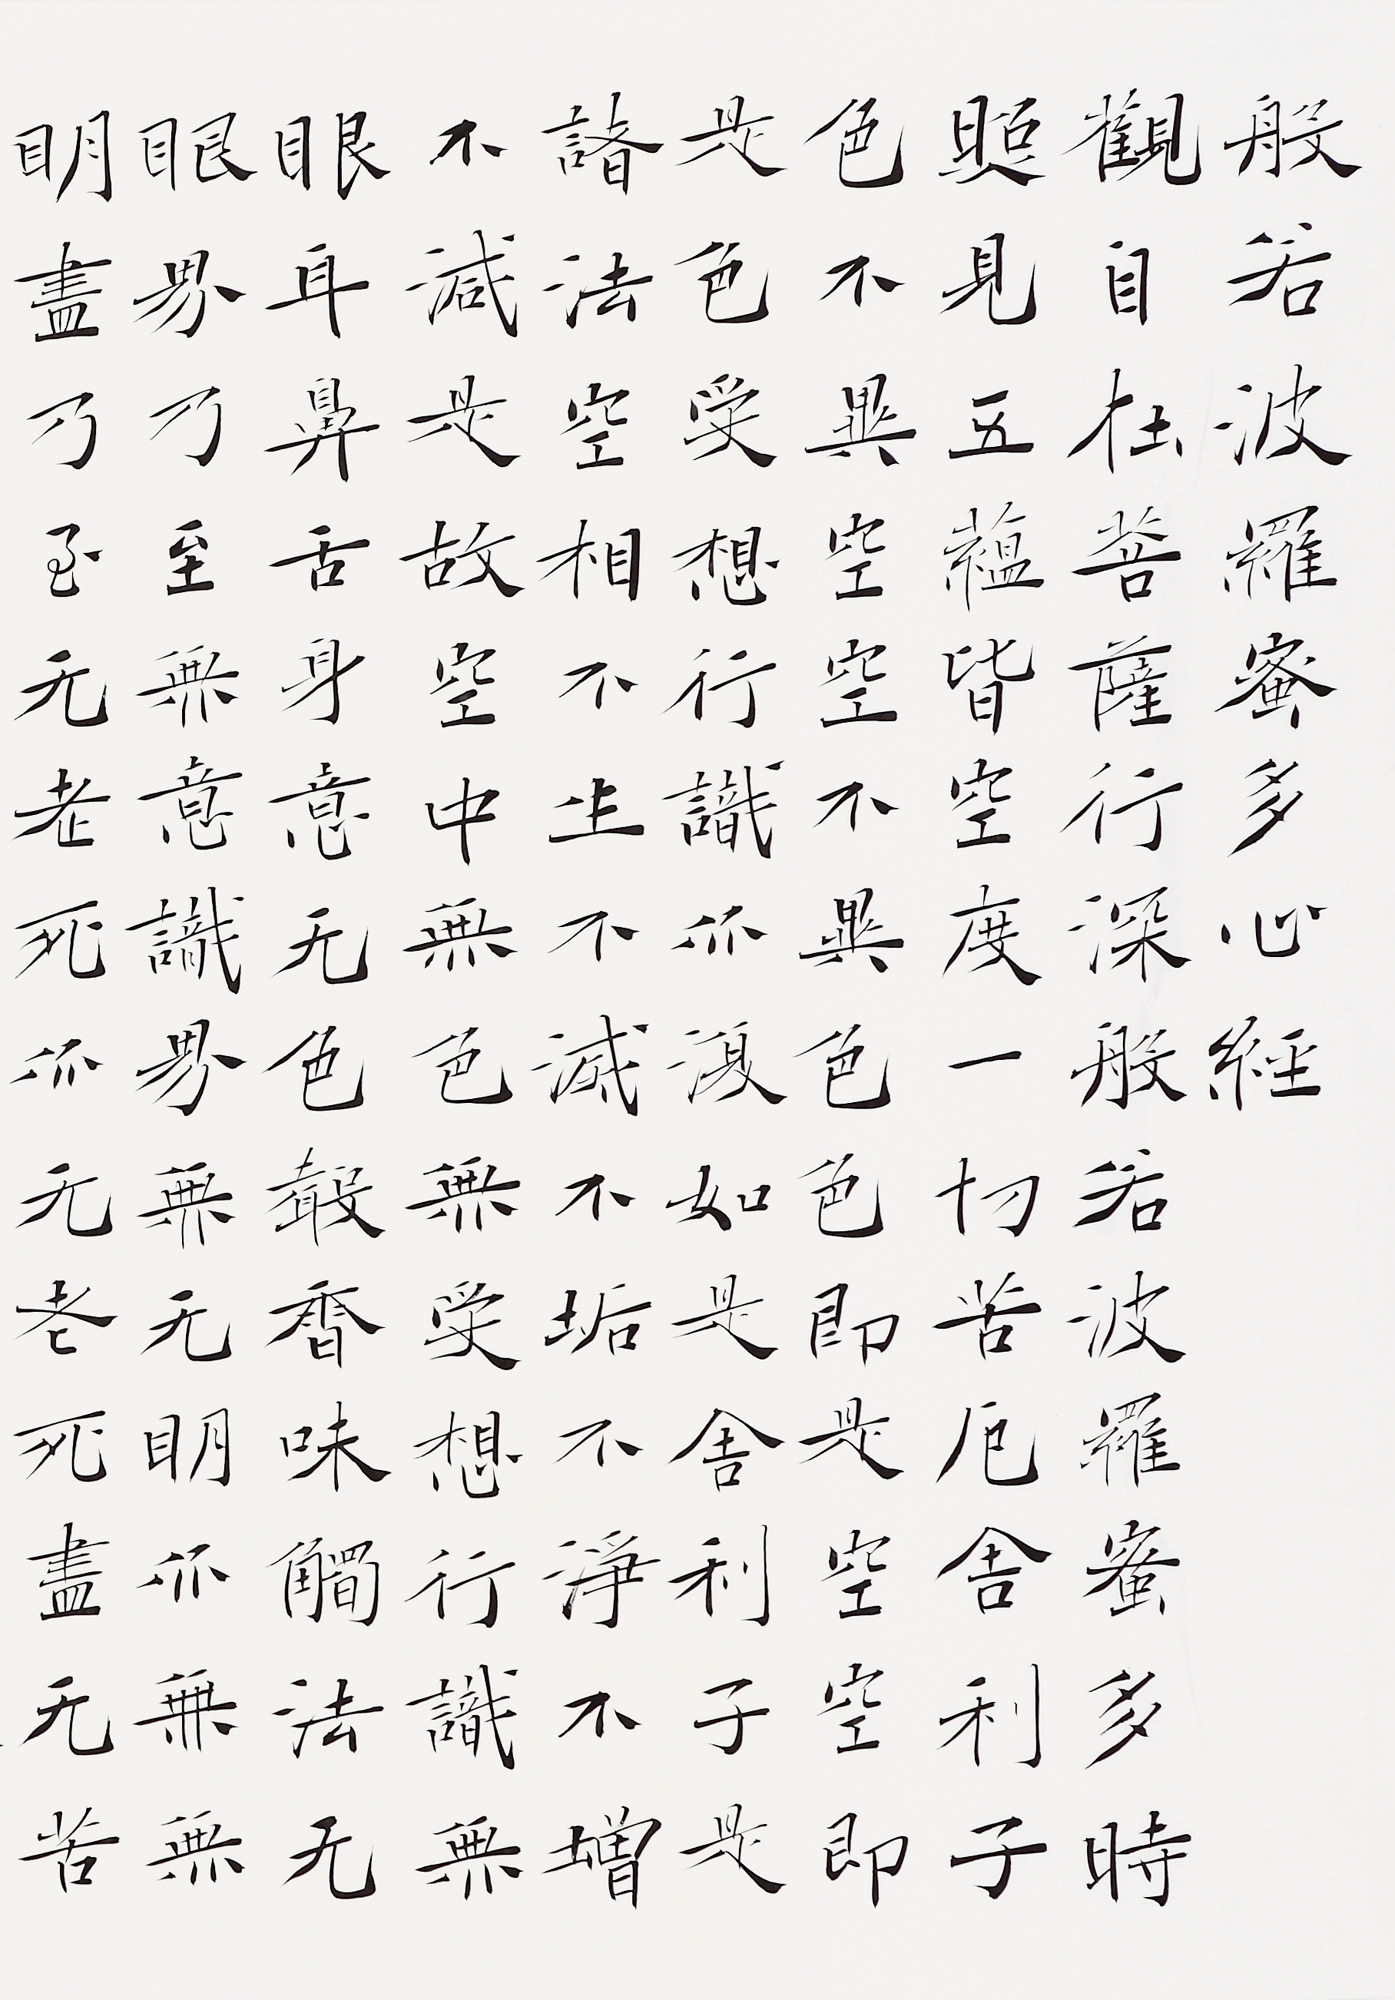 般若波羅蜜多心經
觀自在菩薩行深般若波羅蜜多時
照見五蘊皆空度一切苦厄舍利子
色不異空空不異色色即是空空即
是色受想行識亦復如是舍利子是
諸法空相不生不滅不垢不淨不增
不減是故空中無色無受想行識無
眼耳鼻舌身意无色聲香味觸法无
眼界乃至無意識界無无明亦無無
明盡乃至无老死亦无老死盡无苦